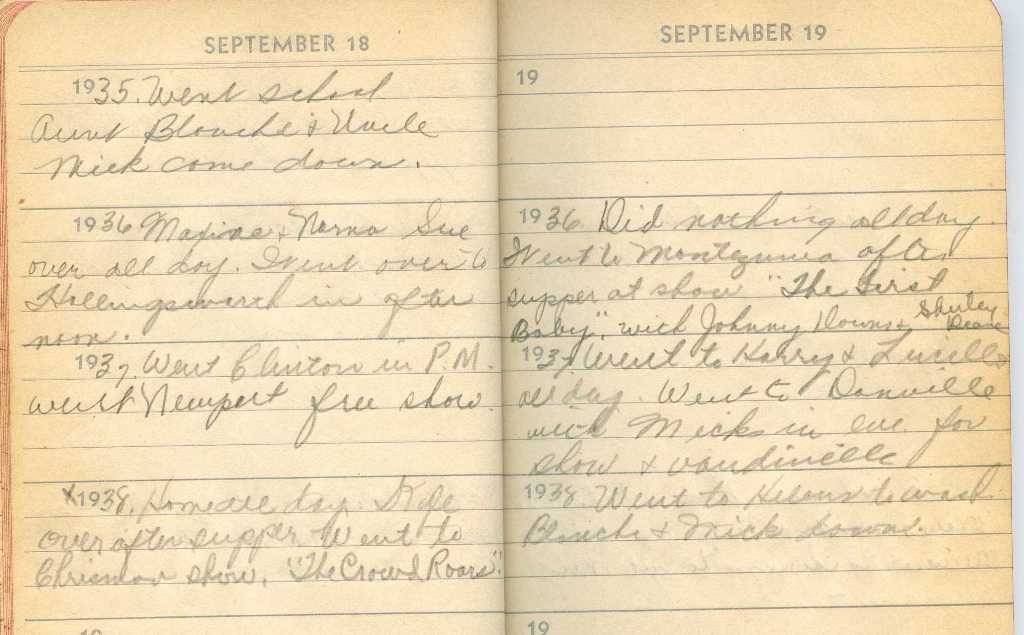 SEPTEMBER 18
1935. Went school
Aunt Blanche & Uncle
Mick come down.
1936 Maxine & Norma Sue
over all day. Went over to
Hollingsworth in after
noon.
1937. Went Clinton in P.M.
went Newport free show.
X1938. Home all day.
over after supper. Went to
Chrisman show. "The Crowd Roars".
19
SEPTEMBER 19
19
1936. Did nothing all day.
Went to Montezuma after
supper at show "The First
Baby", with Johnny Downs & Shirley
Deane
1937 Went to Harry & Lucille
all day. Went to Danville
with Micks in eve. for
show & vaudiville
1938. Went to to wash
Blanche & Mick down.
19